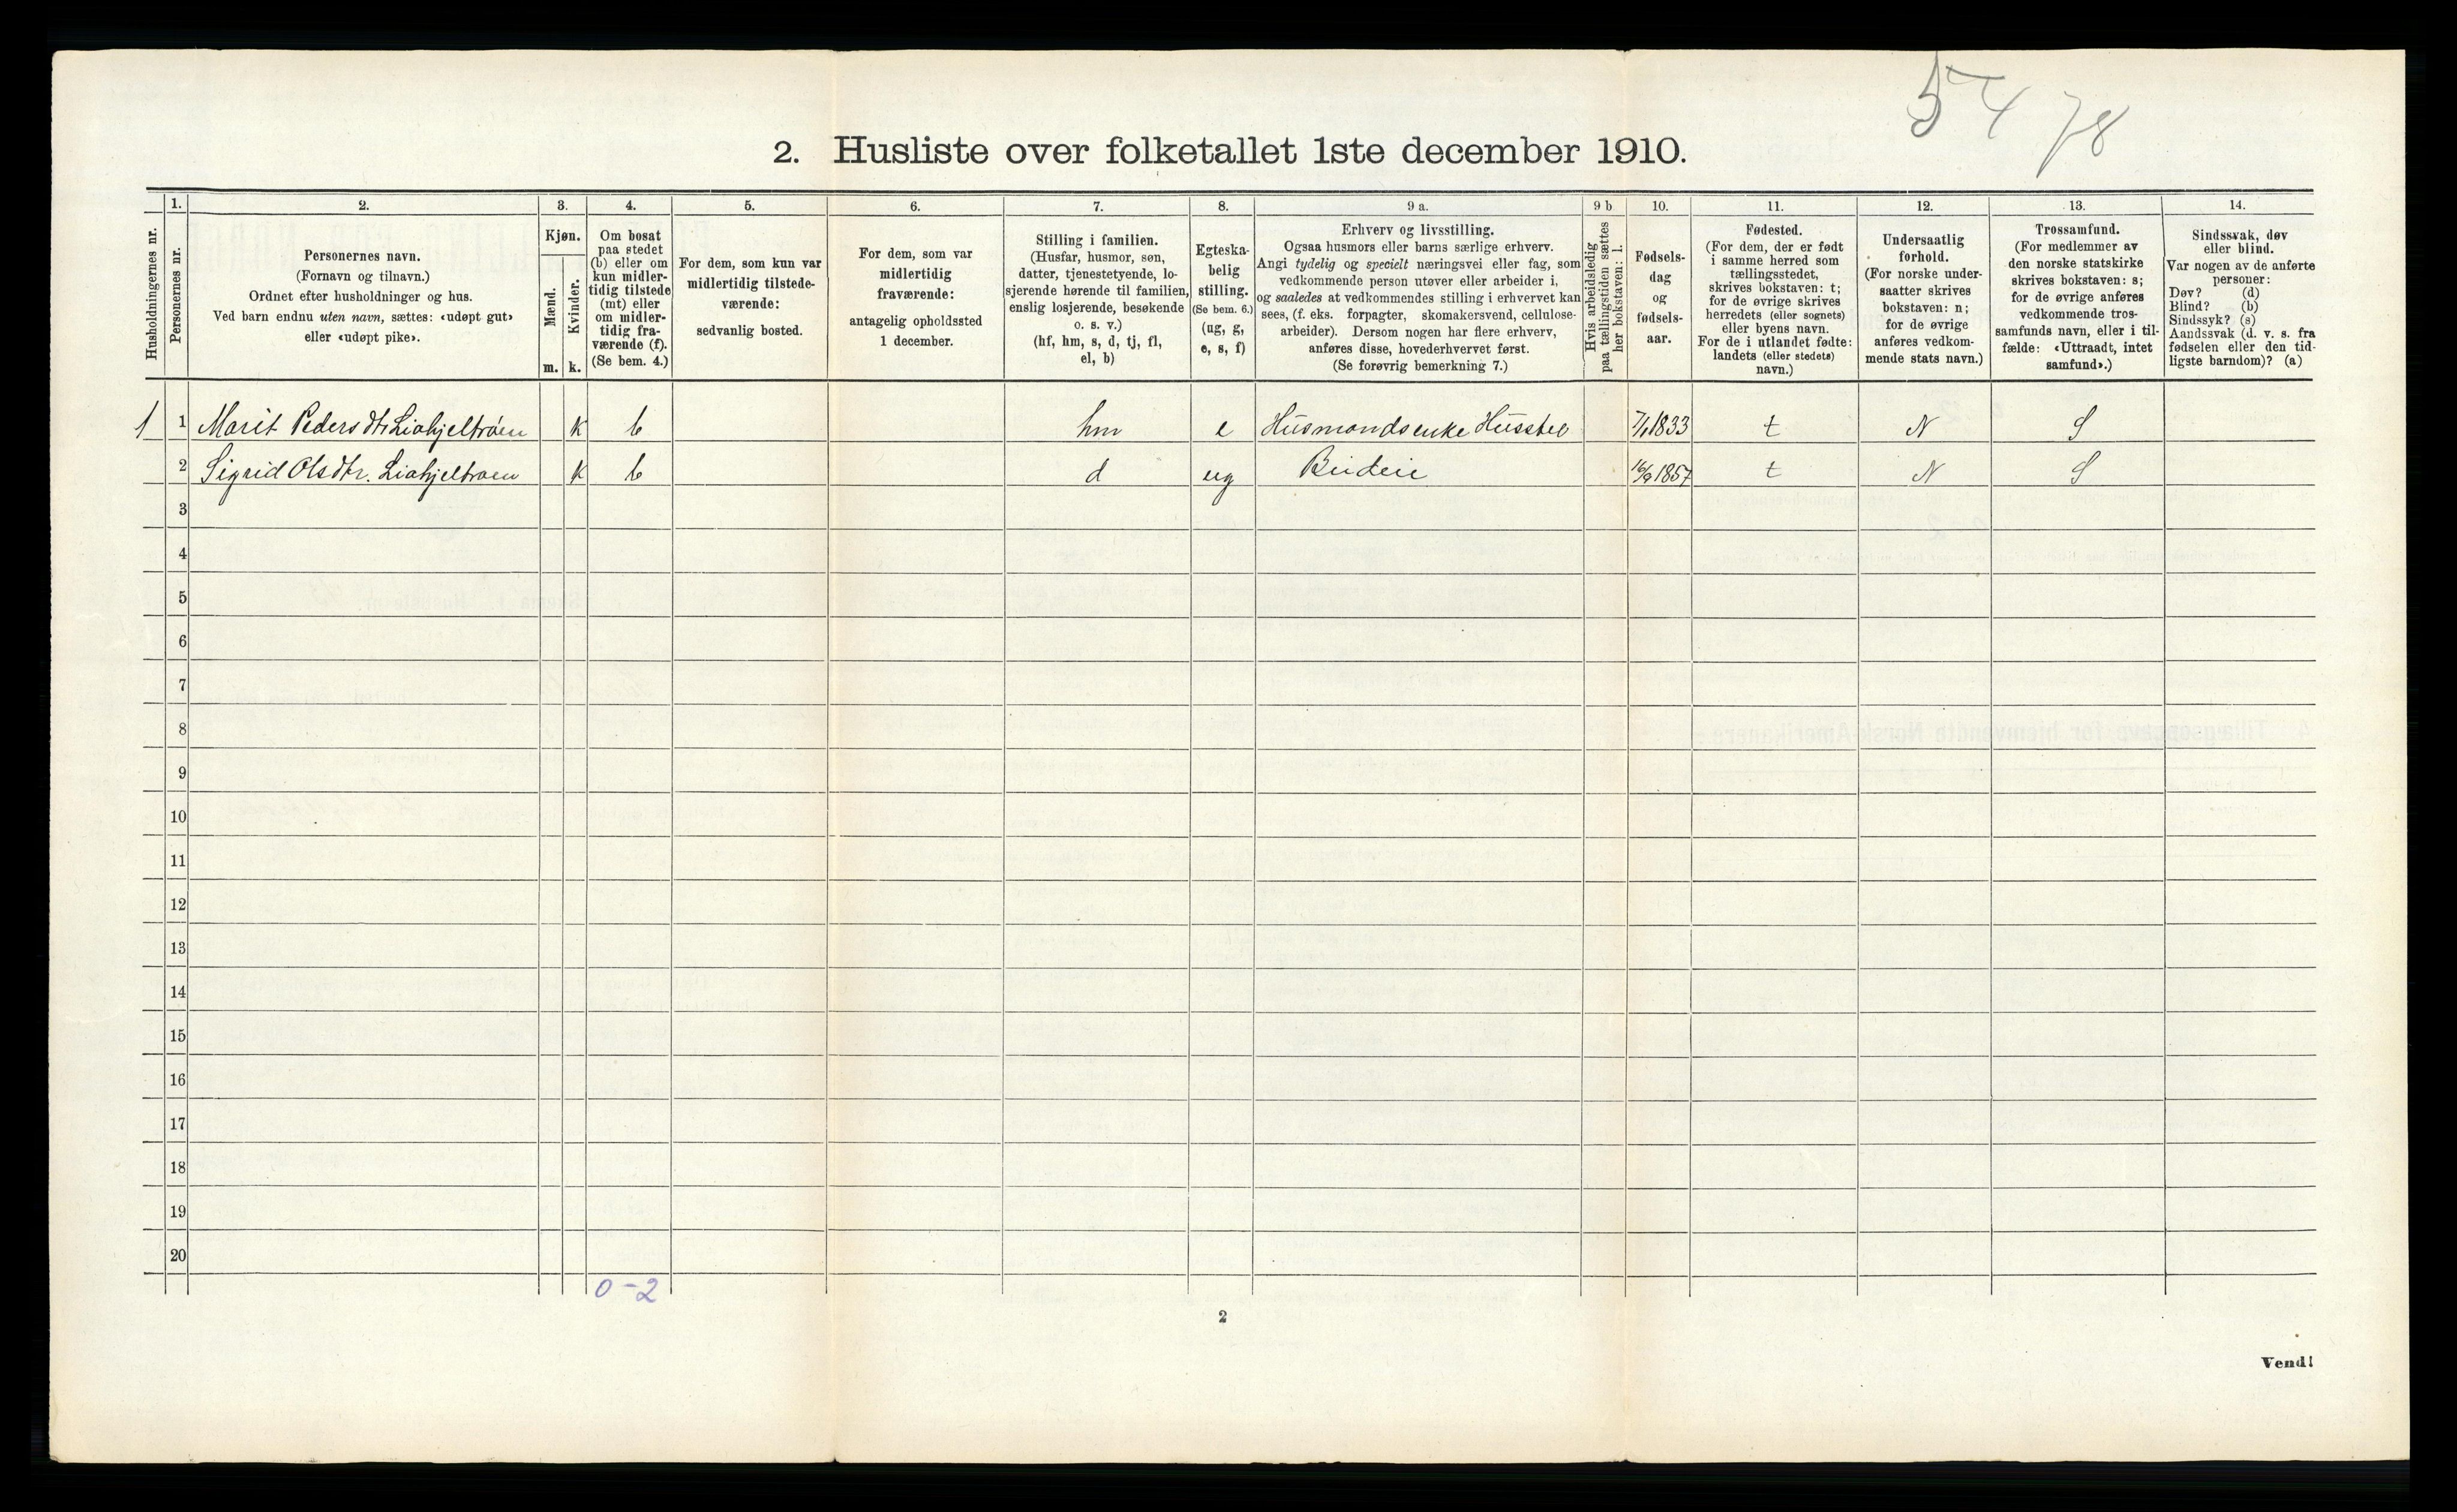 54 78
2. Husliste over folketallet 1ste december 1910.
Husholdningernes nr.
1. Personernes nr.
2. Personernes navn. (Fornavn og tilnavn.) Ordnet efter husholdninger og hus. Ved barn endnu uten navn, sættes: «udøpt gut» eller «udøpt pike».
3. Kjøn. Mænd. m. Kvinder. k.
4. Om bosat paa stedet (b) eller om kun midlertidig tilstede (mt) eller om midlertidig fraværende (f). (Se bem. 4.)
5. For dem, som kun var midlertidig tilstedeværende: sedvanlig bosted.
6. For dem, som var midlertidig fraværende: antagelig opholdssted 1 december.
7. Stilling i familien. (Husfar, husmor, søn, datter, tjenestetyende, losjerende hørende til familien, enslig losjerende, besøkende o. s. v.) (hf, hm, s, d, tj, fl, el, b)
8. Egteskabelig stilling. (Se bem. 6.) (ug, g, e, s, f)
9 a. Erhverv og livsstilling. Ogsaa husmors eller barns særlige erhverv. Angi tydelig og specielt næringsvei eller fag, som vedkommende person utøver eller arbeider i, og saaledes at vedkommendes stilling i erhvervet kan sees, (f. eks. forpagter, skomakersvend, cellulosearbeider). Dersom nogen har flere erhverv, anføres disse, hovederhvervet først. (Se forøvrig bemerkning 7.)
9 b Hvis arbeidsledig paa tællingstiden sættes her bokstaven: l.
10. Fødselsdag og fødselsaar.
11. Fødested. (For dem, der er født i samme herred som tællingsstedet, skrives bokstaven: t; for de øvrige skrives herredets (eller sognets) eller byens navn. For de i utlandet fødte: landets (eller stedets) navn.)
12. Undersaatlig forhold. (For norske undersaatter skrives bokstaven: n; for de øvrige anføres vedkommende stats navn.)
13. Trossamfund. (For medlemmer av den norske statskirke skrives bokstaven: s; for de øvrige anføres vedkommende trossamfunds navn, eller i tilfælde: «Uttraadt, intet samfund».)
14. Sindssvak, døv eller blind. Var nogen av de anførte personer: Døv? (d) Blind? (b) Sindssyk? (s) Aandssvak (d. v. s. fra fødselen eller den tidligste barndom)? (a)
1 1 Marit Pedersdtr Liahjeltrøen k b hm e Husmandsenke Husstel 7/1 1833 t N S
2 Sigrid Olsdtr. Liahjeltroen k b d ug Budeie 16/9 1857 t N S
3
4
5
6
7
8
9
10
11
12
13
14
15
16
17
18
19
20
0-2
2
Vend!